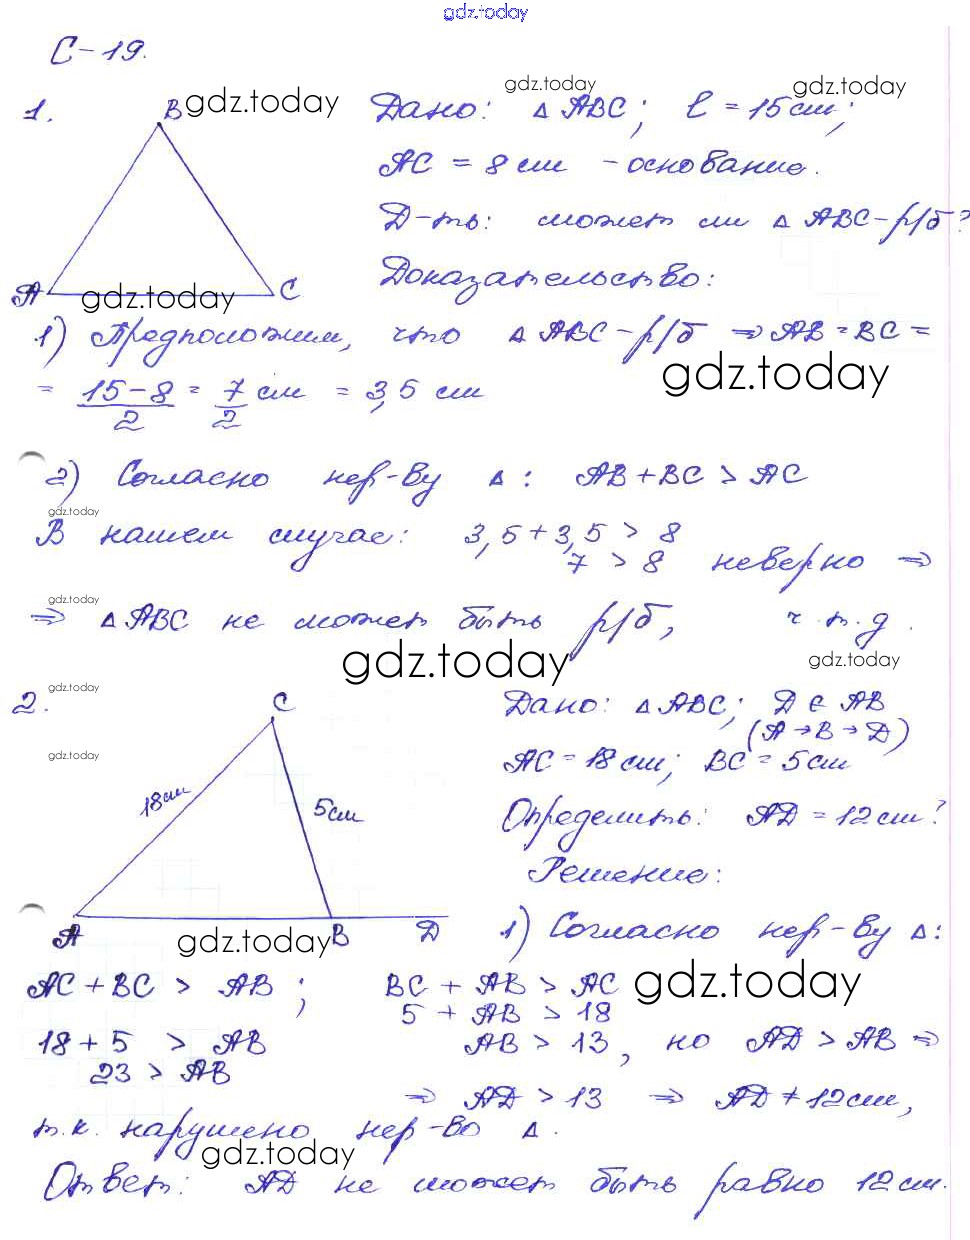 gdz.today
С-19.
1.
B gdz.today
gdz.today
gdz.today
Дано: △ ABC; l = 15 см;
AC = 8 см - основание.
Д-ть: может ли △ ABC - р/б?
Доказательство:
A gdz.today C
1) Предположим, что △ ABC - р/б ⇒ AB = BC =
= (15-8)/2 = 7/2 см = 3,5 см
gdz.today
2) Согласно нер-ву △: AB + BC > AC
gdz.today
В нашем случае: 3,5 + 3,5 > 8
7 > 8 неверно ⇒
gdz.today
⇒ △ ABC не может быть р/б, ч.т.д.
gdz.today
gdz.today
gdz.today
2.
C
gdz.today
18 см
5 см
A gdz.today B D
Дано: △ ABC; D ∈ AB
(A → B → D)
AC = 18 см; BC = 5 см
Определить: AD = 12 см?
Решение:
1) Согласно нер-ву △:
AC + BC > AB; BC + AB > AC
gdz.today
5 + AB > 18
18 + 5 > AB AB > 13, но AD > AB ⇒
23 > AB
⇒ AD > 13 ⇒ AD ≠ 12 см,
т.к. нарушено нер-во △.
gdz.today
Ответ: AD не может быть равно 12 см.